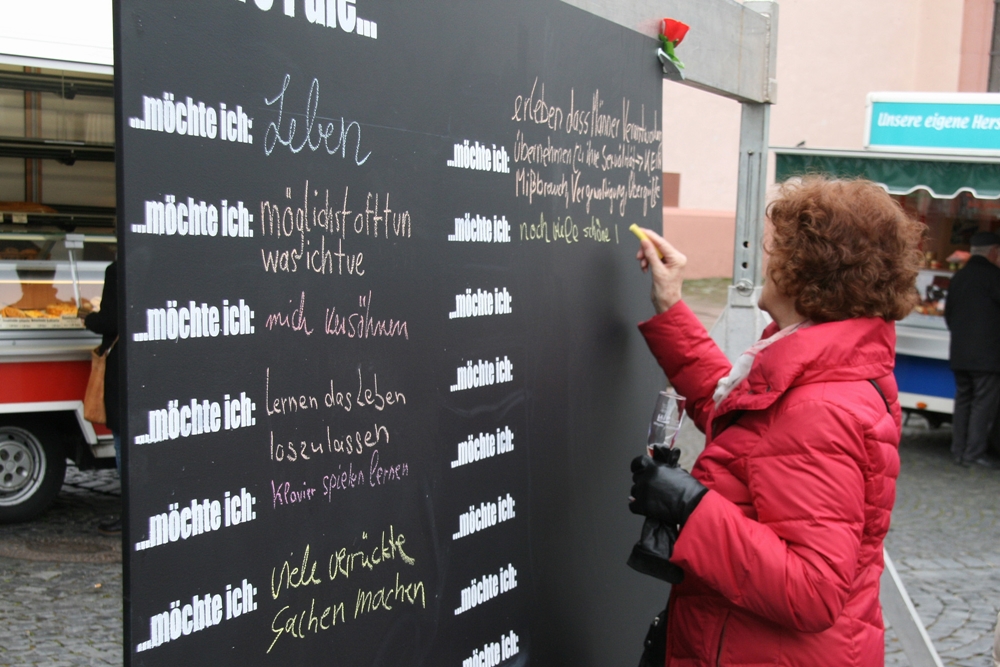 ...möchte ich: Leben
...möchte ich: möglichst oft tun
was ich tue
...möchte ich: mich versöhnen
...möchte ich: lernen das Leben
loszulassen
Klavier spielen lernen
...möchte ich:
...möchte ich: viele verrückte
Sachen machen
erleben dass Männer
...möchte ich: Übernehmen für ihre
Mißbrauch, Vergewaltigung, Übergriffe
...möchte ich: noch viele schöne
...möchte ich:
...möchte ich:
...möchte ich:
...möchte ich:
...möchte ich:
...möchte ich:
Unsere eigene Hers